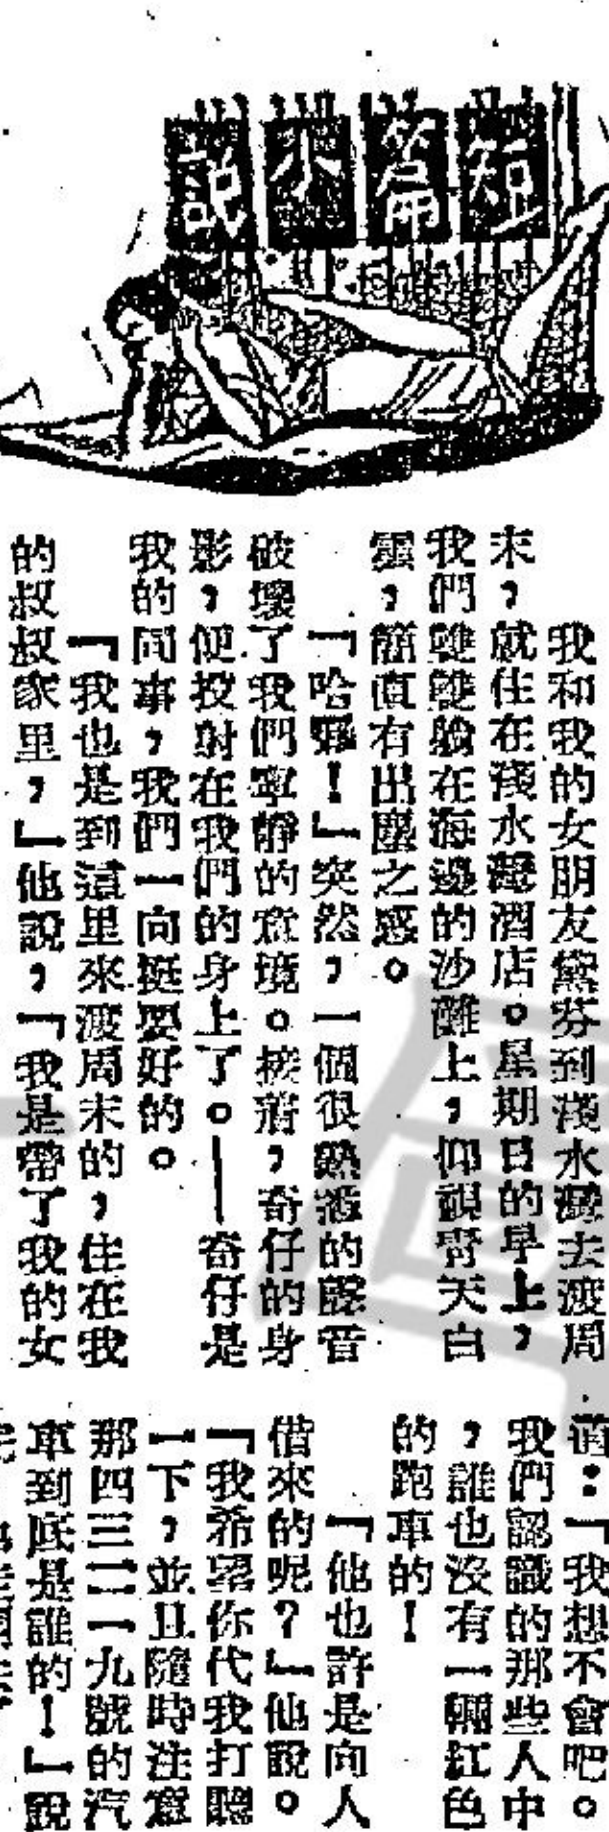 短篇小說
我和我的女朋友黛芬到淺水灣去渡周
末，就住在淺水灣酒店。星期日的早上，
我們雙雙躺在海邊的沙灘上，仰視靑天白
雲，簡直有出塵之感。
『哈囉！』突然，一個很熟悉的聲音
破壞了我們寧靜的意境。接着，奇仔的身
影，便投射在我們的身上了。——奇仔是
我的同事，我們一向挺要好的。
『我也是到這里來渡周末的，住在我
的叔叔家里，』他說，『我是帶了我的女
道：『我想不會吧。
我們認識的那些人中
，誰也沒有一輛紅色
的跑車的！
『他也許是向人
借來的呢？』他說。
『我希望你代我打聽
一下，並且隨時注意
那四三二一九號的汽
車到底是誰的！』說